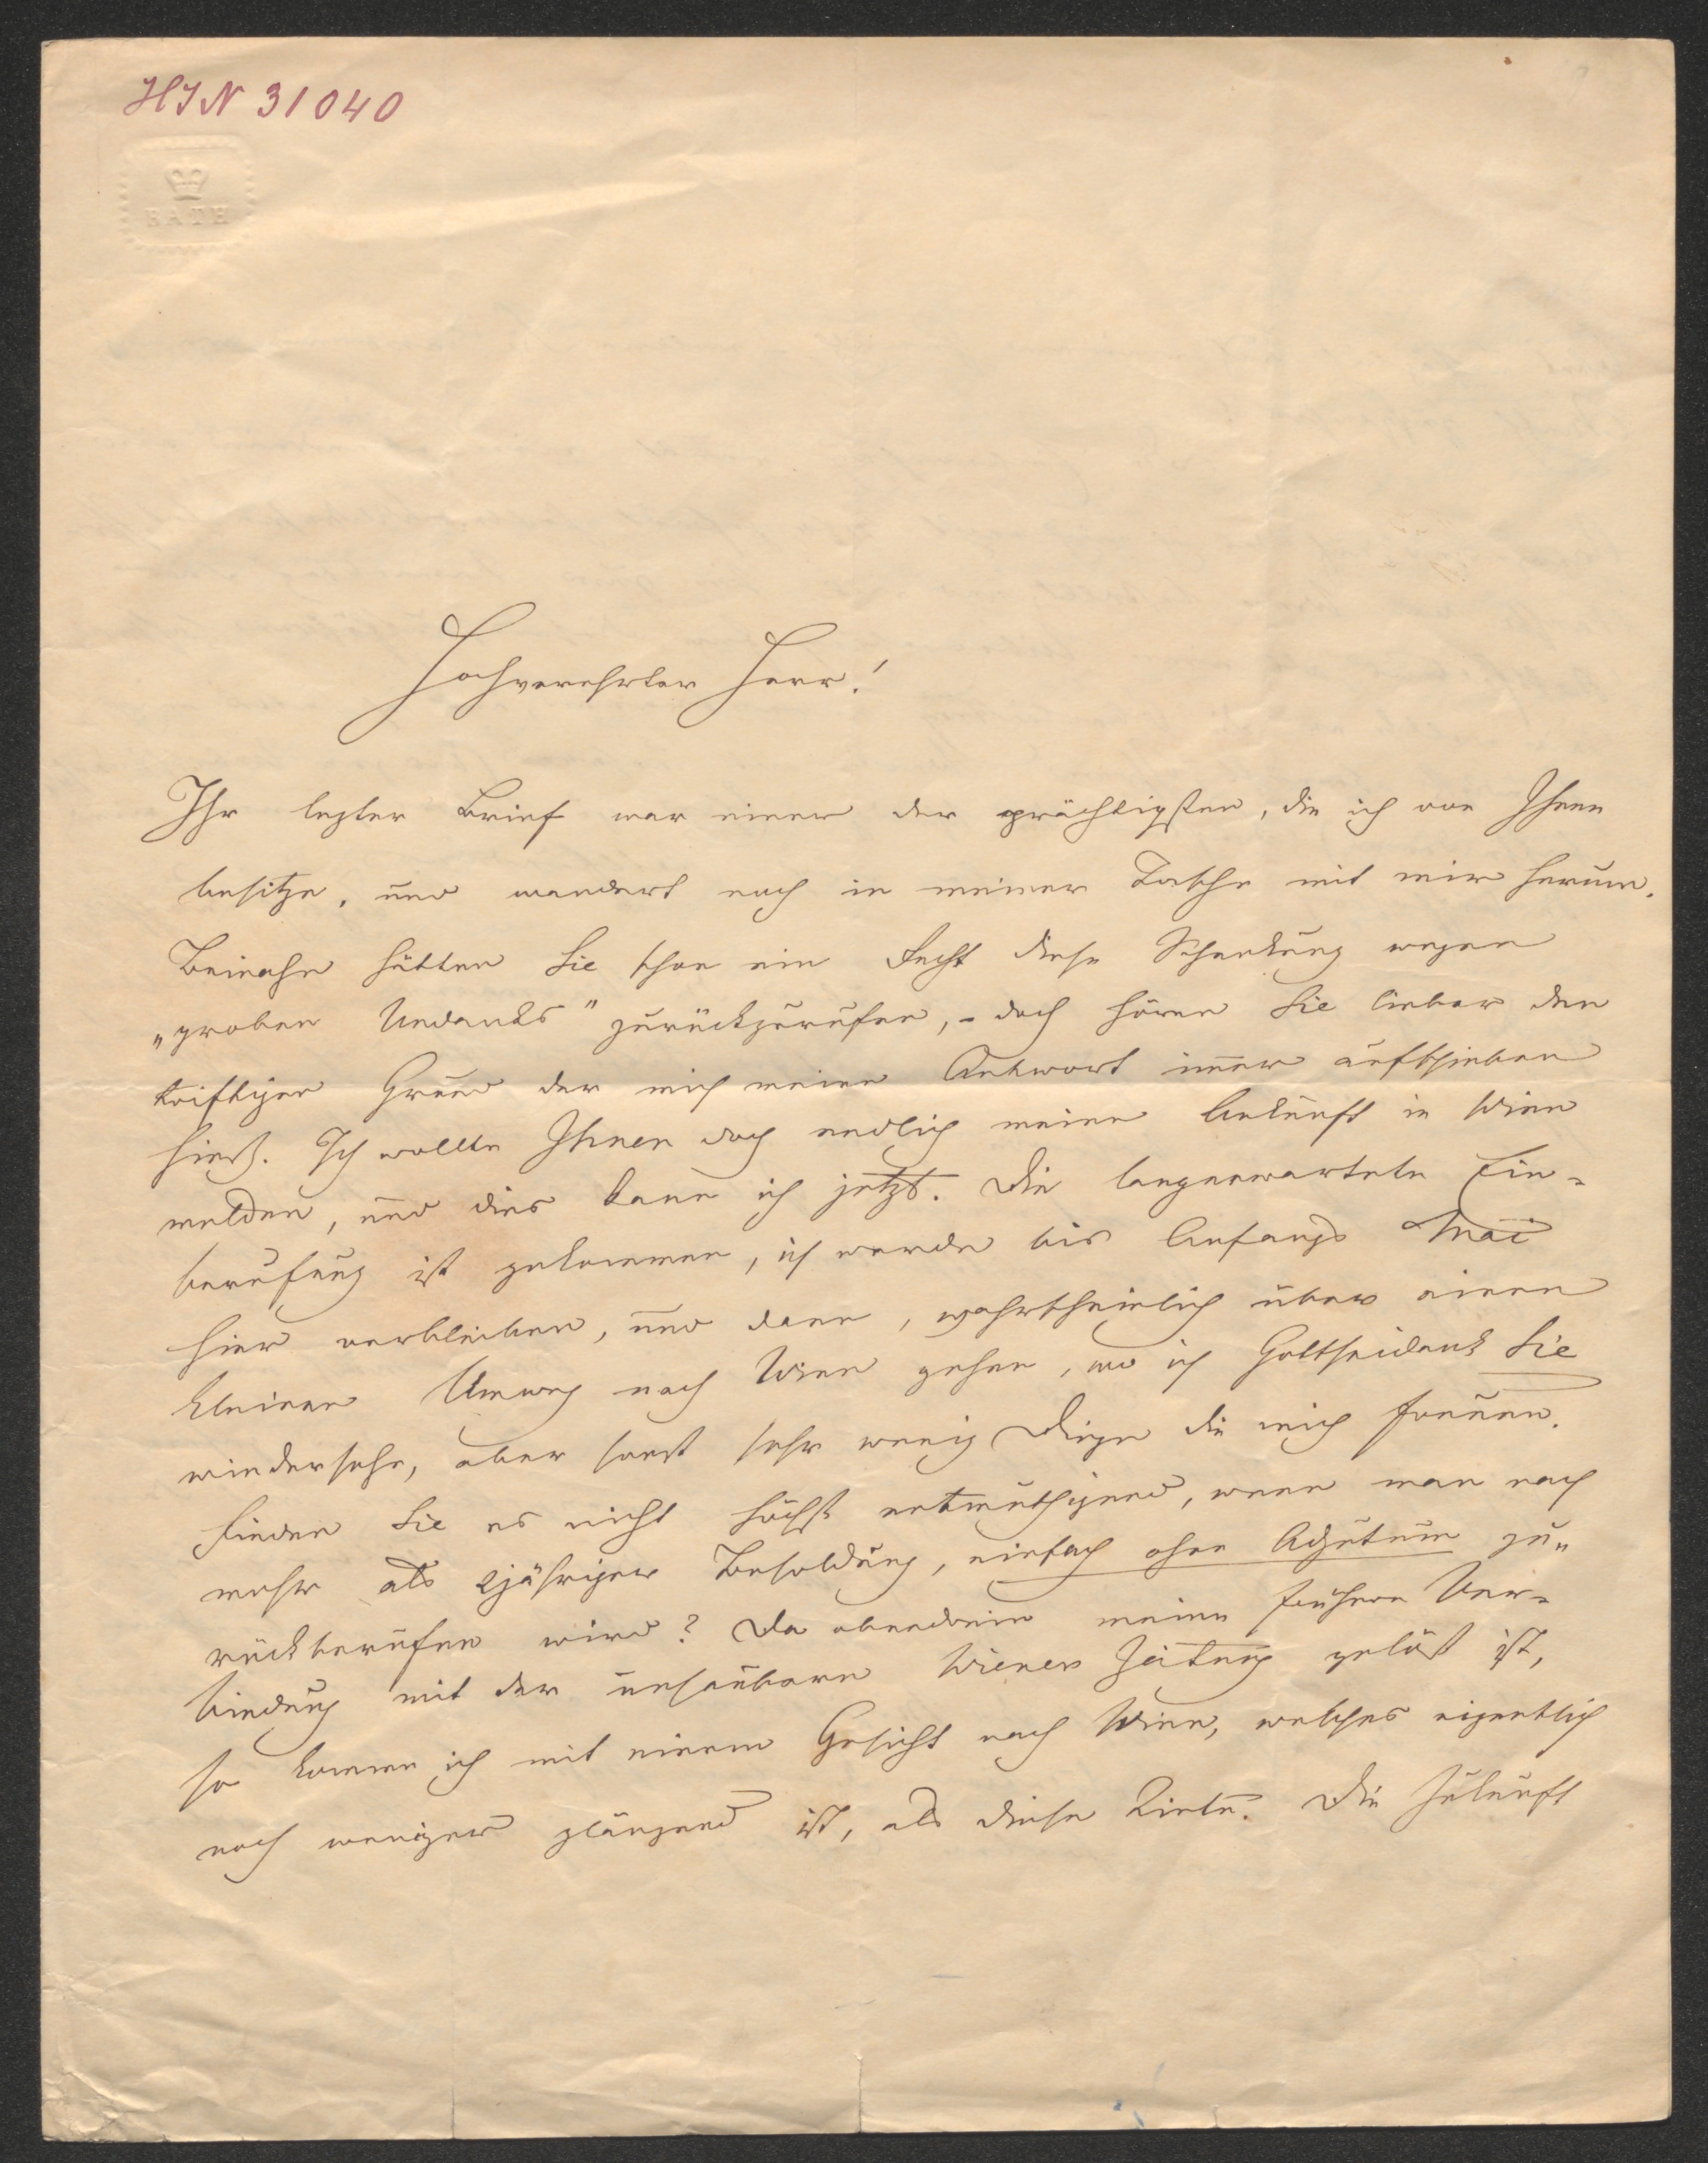 HIN 31040
BATH
Hochverehrter Herr!
Ihr lezter Brief war einer der prächtigsten, die ich von Ihnen
besitze, und wandert noch in meiner Tasche mit mir herum.
Beinahe hätten Sie schon ein Recht diese Schenkung wegen
„groben Undanks" zurückzurufen, - doch hören Sie lieber den
triftigen Grund der mich meine Antwort immer aufschieben
hieß. Ich wollte Ihnen doch endlich meine Ankunft in Wien
melden, und dies kann ich jetzt. Die langerwartete Ein-
berufung ist gekommen, ich werde bis Anfangs Mai
hier verbleiben, und dann, wahrscheinlich über einen
kleinen Umweg nach Wien gehen, wo ich Gottseidank Sie
wiedersehe, aber sonst sehr wenig Dinge die mich freuen.
Finden Sie es nicht höchst entmuthigend, wenn man nach
mehr als 2jähriger Besoldung, einfach ohne Adjutum zu-
rückberufen wird? Da obendrein meine frühere Ver-
bindung mit der unsaubern Wiener Zeitung gelöst ist,
so komme ich mit einem Gesicht nach Wien, welches eigentlich
noch weniger glänzend ist, als diese Tinte. Die Zukunft